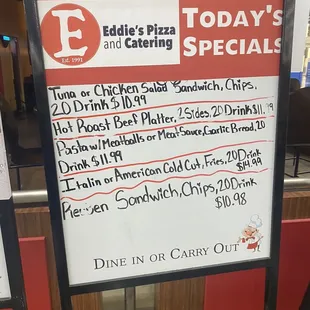 E
Est. 1991
Eddie's Pizza
and Catering
TODAY'S
SPECIALS
Tuna or Chicken Salad Sandwich, Chips,
20 Drink $10.99
Hot Roast Beef Platter, 2 Sides, 20 Drink $11.
Pasta w/ Meatballs or Meat Sauce, Garlic Bread, 20
Drink $11.99
Italin or American Cold Cut, Fries, 20 Drink
$14.99
Sandwich, Chips, 20 Drink
$10.98
DINE IN OR CARRY OUT